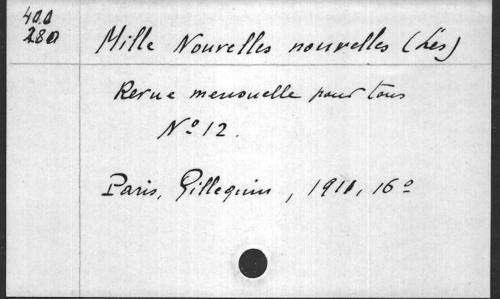 400
280
Mille Nouvelles nouvelles (Les)
Revue mensuelle pour tous
Nº 12.
Paris, Gillequin, 1911, 16º